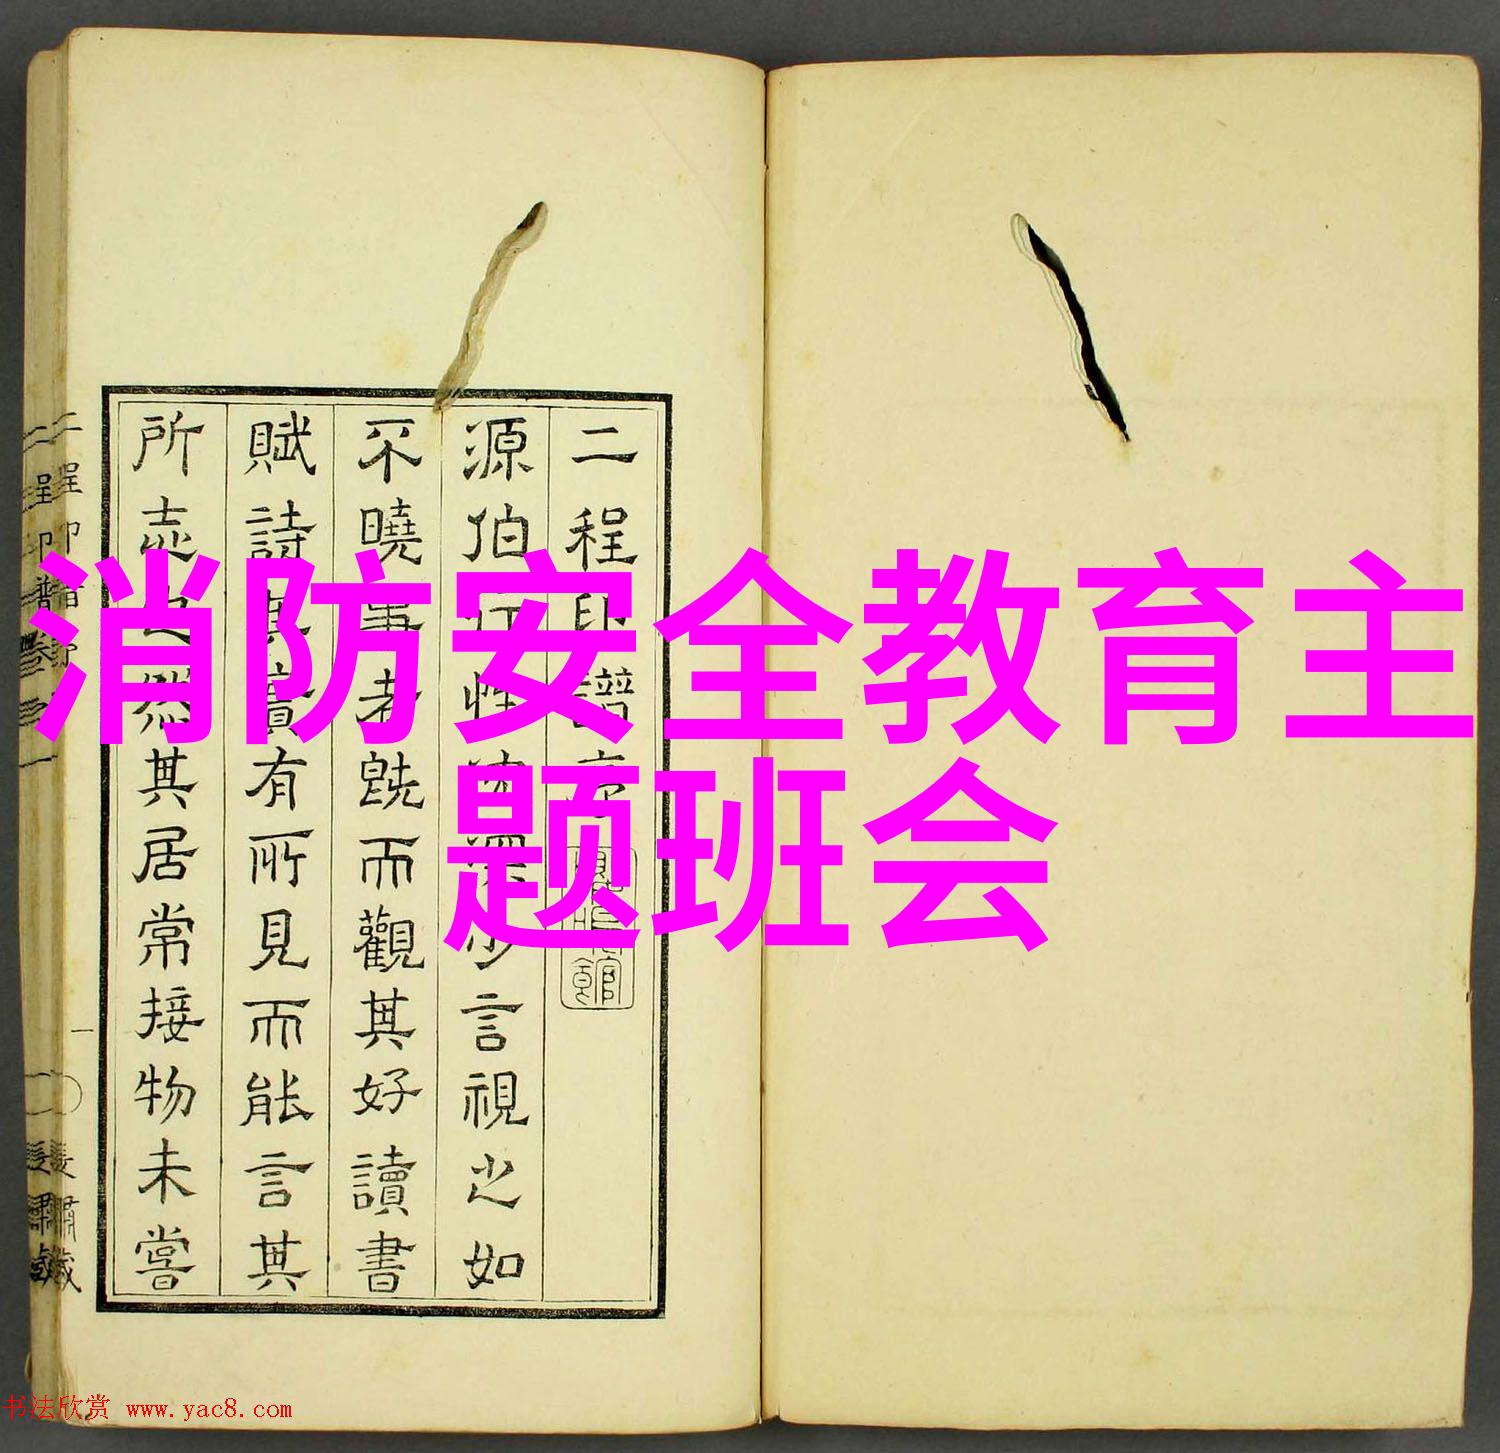 消防安全教育主
题班会
二程印譜序
源伯性沈深少言視之如
不曉事者旣而觀其好讀書
賦詩其意有所見而能言其
所志也然其居常接物未嘗
书法欣赏 www.yac8.com